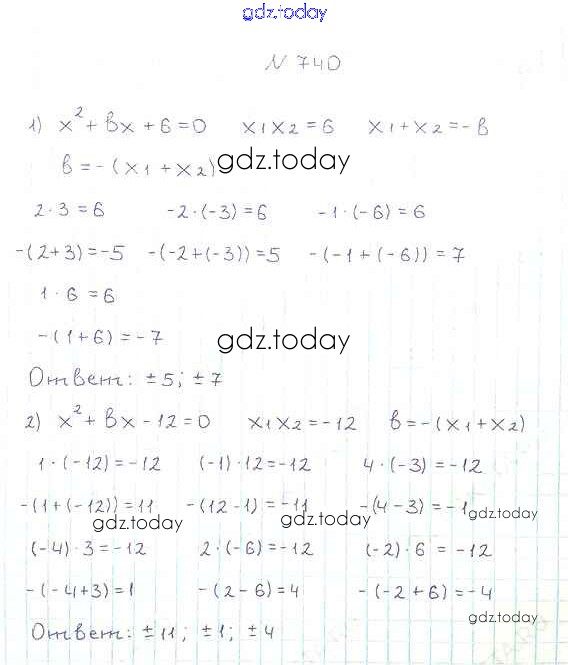 gdz.today
N 740
1) x² + вx + 6 = 0 x₁x₂ = 6 x₁ + x₂ = - в
в = - (x₁ + x₂) gdz.today
2 · 3 = 6 -2 · (-3) = 6 -1 · (-6) = 6
-(2+3) = -5 -(-2+(-3)) = 5 -(-1+(-6)) = 7
1 · 6 = 6
-(1+6) = -7 gdz.today
Ответ: ±5; ±7
2) x² + вx - 12 = 0 x₁x₂ = -12 в = -(x₁ + x₂)
1 · (-12) = -12 (-1) · 12 = -12 4 · (-3) = -12
-(1+(-12)) = 11 -(12-1) = -11 -(4-3) = -1
gdz.today gdz.today gdz.today
(-4) · 3 = -12 2 · (-6) = -12 (-2) · 6 = -12
-(-4+3) = 1 -(2-6) = 4 -(-2+6) = -4
Ответ: ±11; ±1; ±4 gdz.today